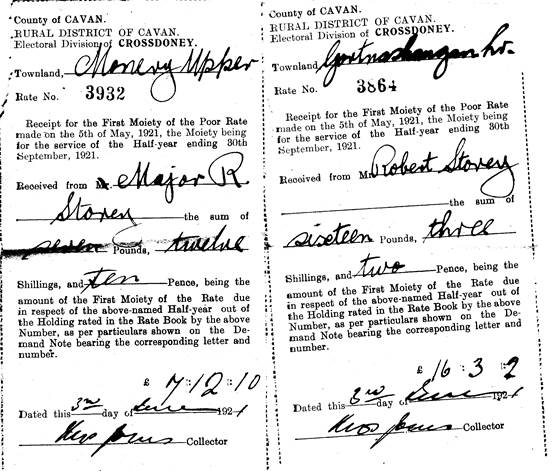 County of CAVAN.
RURAL DISTRICT OF CAVAN.
Electoral Division of CROSSDONEY.
Townland, Monery Upper
Rate No. 3932
Receipt for the First Moiety of the Poor Rate
made on the 5th of May, 1921, the Moiety being
for the service of the Half-year ending 30th
September, 1921.
Received from Mr. Major R
Storey the sum of
seven Pounds, twelve
Shillings, and ten Pence, being the
amount of the First Moiety of the Rate due
in respect of the above-named Half-year out of
the Holding rated in the Rate Book by the above
Number, as per particulars shown on the De-
mand Note bearing the corresponding letter and
number.
£ 7 : 12 : 10
Dated this 3rd day of June 1921
Collector
County of CAVAN.
RURAL DISTRICT OF CAVAN.
Electoral Division of CROSSDONEY.
Townland, Gortnashangan Lr.
Rate No. 3864
Receipt for the First Moiety of the Poor Rate
made on the 5th of May, 1921, the Moiety being
for the service of the Half-year ending 30th
September, 1921.
Received from Mr Robert Storey
the sum of
sixteen Pounds, three
Shillings, and two Pence, being the
amount of the First Moiety of the Rate due
in respect of the above-named Half-year out of
the Holding rated in the Rate Book by the above
Number, as per particulars shown on the De-
mand Note bearing the corresponding letter and
number.
£ 16 : 3 : 2
Dated this 3rd day of June 1921
Collector